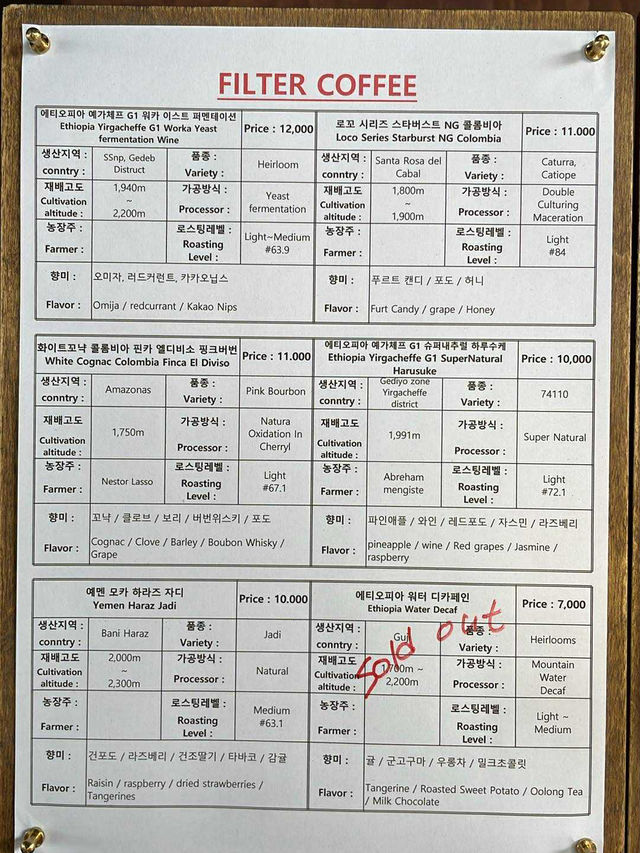 FILTER COFFEE
에티오피아 예가체프 G1 워카 이스트 퍼멘테이션
Ethiopia Yirgacheffe G1 Worka Yeast
fermentation Wine
Price : 12,000
생산지역 :
conntry :
SSnp, Gedeb
Distruct
품종 :
Variety :
Heirloom
재배고도
Cultivation
altitude :
1,940m
~
2,200m
가공방식 :
Processor :
Yeast
fermentation
농장주 :
Farmer :
로스팅레벨 :
Roasting
Level :
Light~Medium
#63.9
향미 :
오미자, 러드커런트, 카카오닙스
Flavor :
Omija / redcurrant / Kakao Nips
로꼬 시리즈 스타버스트 NG 콜롬비아
Loco Series Starburst NG Colombia
Price : 11.000
생산지역 :
conntry :
Santa Rosa del
Cabal
품종 :
Variety :
Caturra,
Catiope
재배고도
Cultivation
altitude :
1,800m
~
1,900m
가공방식 :
Processor :
Double
Culturing
Maceration
농장주 :
Farmer :
로스팅레벨 :
Roasting
Level :
Light
#84
향미 :
푸르트 캔디 / 포도 / 허니
Flavor :
Furt Candy / grape / Honey
화이트꼬냑 콜롬비아 핀카 엘디비소 핑크버번
White Cognac Colombia Finca El Diviso
Price : 11.000
생산지역 :
conntry :
Amazonas
품종 :
Variety :
Pink Bourbon
재배고도
Cultivation
altitude :
1,750m
가공방식 :
Processor :
Natura
Oxidation In
Cherryl
농장주 :
Farmer :
Nestor Lasso
로스팅레벨 :
Roasting
Level :
Light
#67.1
향미 :
꼬냑 / 클로브 / 보리 / 버번위스키 / 포도
Flavor :
Cognac / Clove / Barley / Boubon Whisky /
Grape
에티오피아 예가체프 G1 슈퍼내추럴 하루수케
Ethiopia Yirgacheffe G1 SuperNatural
Harusuke
Price : 10,000
생산지역 :
conntry :
Gediyo zone
Yirgacheffe
district
품종 :
Variety :
74110
재배고도
Cultivation
altitude :
1,991m
가공방식 :
Processor :
Super Natural
농장주 :
Farmer :
Abreham
mengiste
로스팅레벨 :
Roasting
Level :
Light
#72.1
향미 :
파인애플 / 와인 / 레드포도 / 자스민 / 라즈베리
Flavor :
pineapple / wine / Red grapes / Jasmine /
raspberry
예멘 모카 하라즈 자디
Yemen Haraz Jadi
Price : 10.000
생산지역 :
conntry :
Bani Haraz
품종 :
Variety :
Jadi
재배고도
Cultivation
altitude :
2,000m
~
2,300m
가공방식 :
Processor :
Natural
농장주 :
Farmer :
로스팅레벨 :
Roasting
Level :
Medium
#63.1
향미 :
건포도 / 라즈베리 / 건조딸기 / 타바코 / 감귤
Flavor :
Raisin / raspberry / dried strawberries /
Tangerines
에티오피아 워터 디카페인
Ethiopia Water Decaf
Price : 7,000
생산지역 :
conntry :
Guji
품종 :
Variety :
Heirlooms
Sold out
재배고도
Cultivation
altitude :
1,700m ~
2,200m
가공방식 :
Processor :
Mountain
Water
Decaf
농장주 :
Farmer :
로스팅레벨 :
Roasting
Level :
Light ~
Medium
향미 :
귤 / 군고구마 / 우롱차 / 밀크초콜릿
Flavor :
Tangerine / Roasted Sweet Potato / Oolong Tea
/ Milk Chocolate